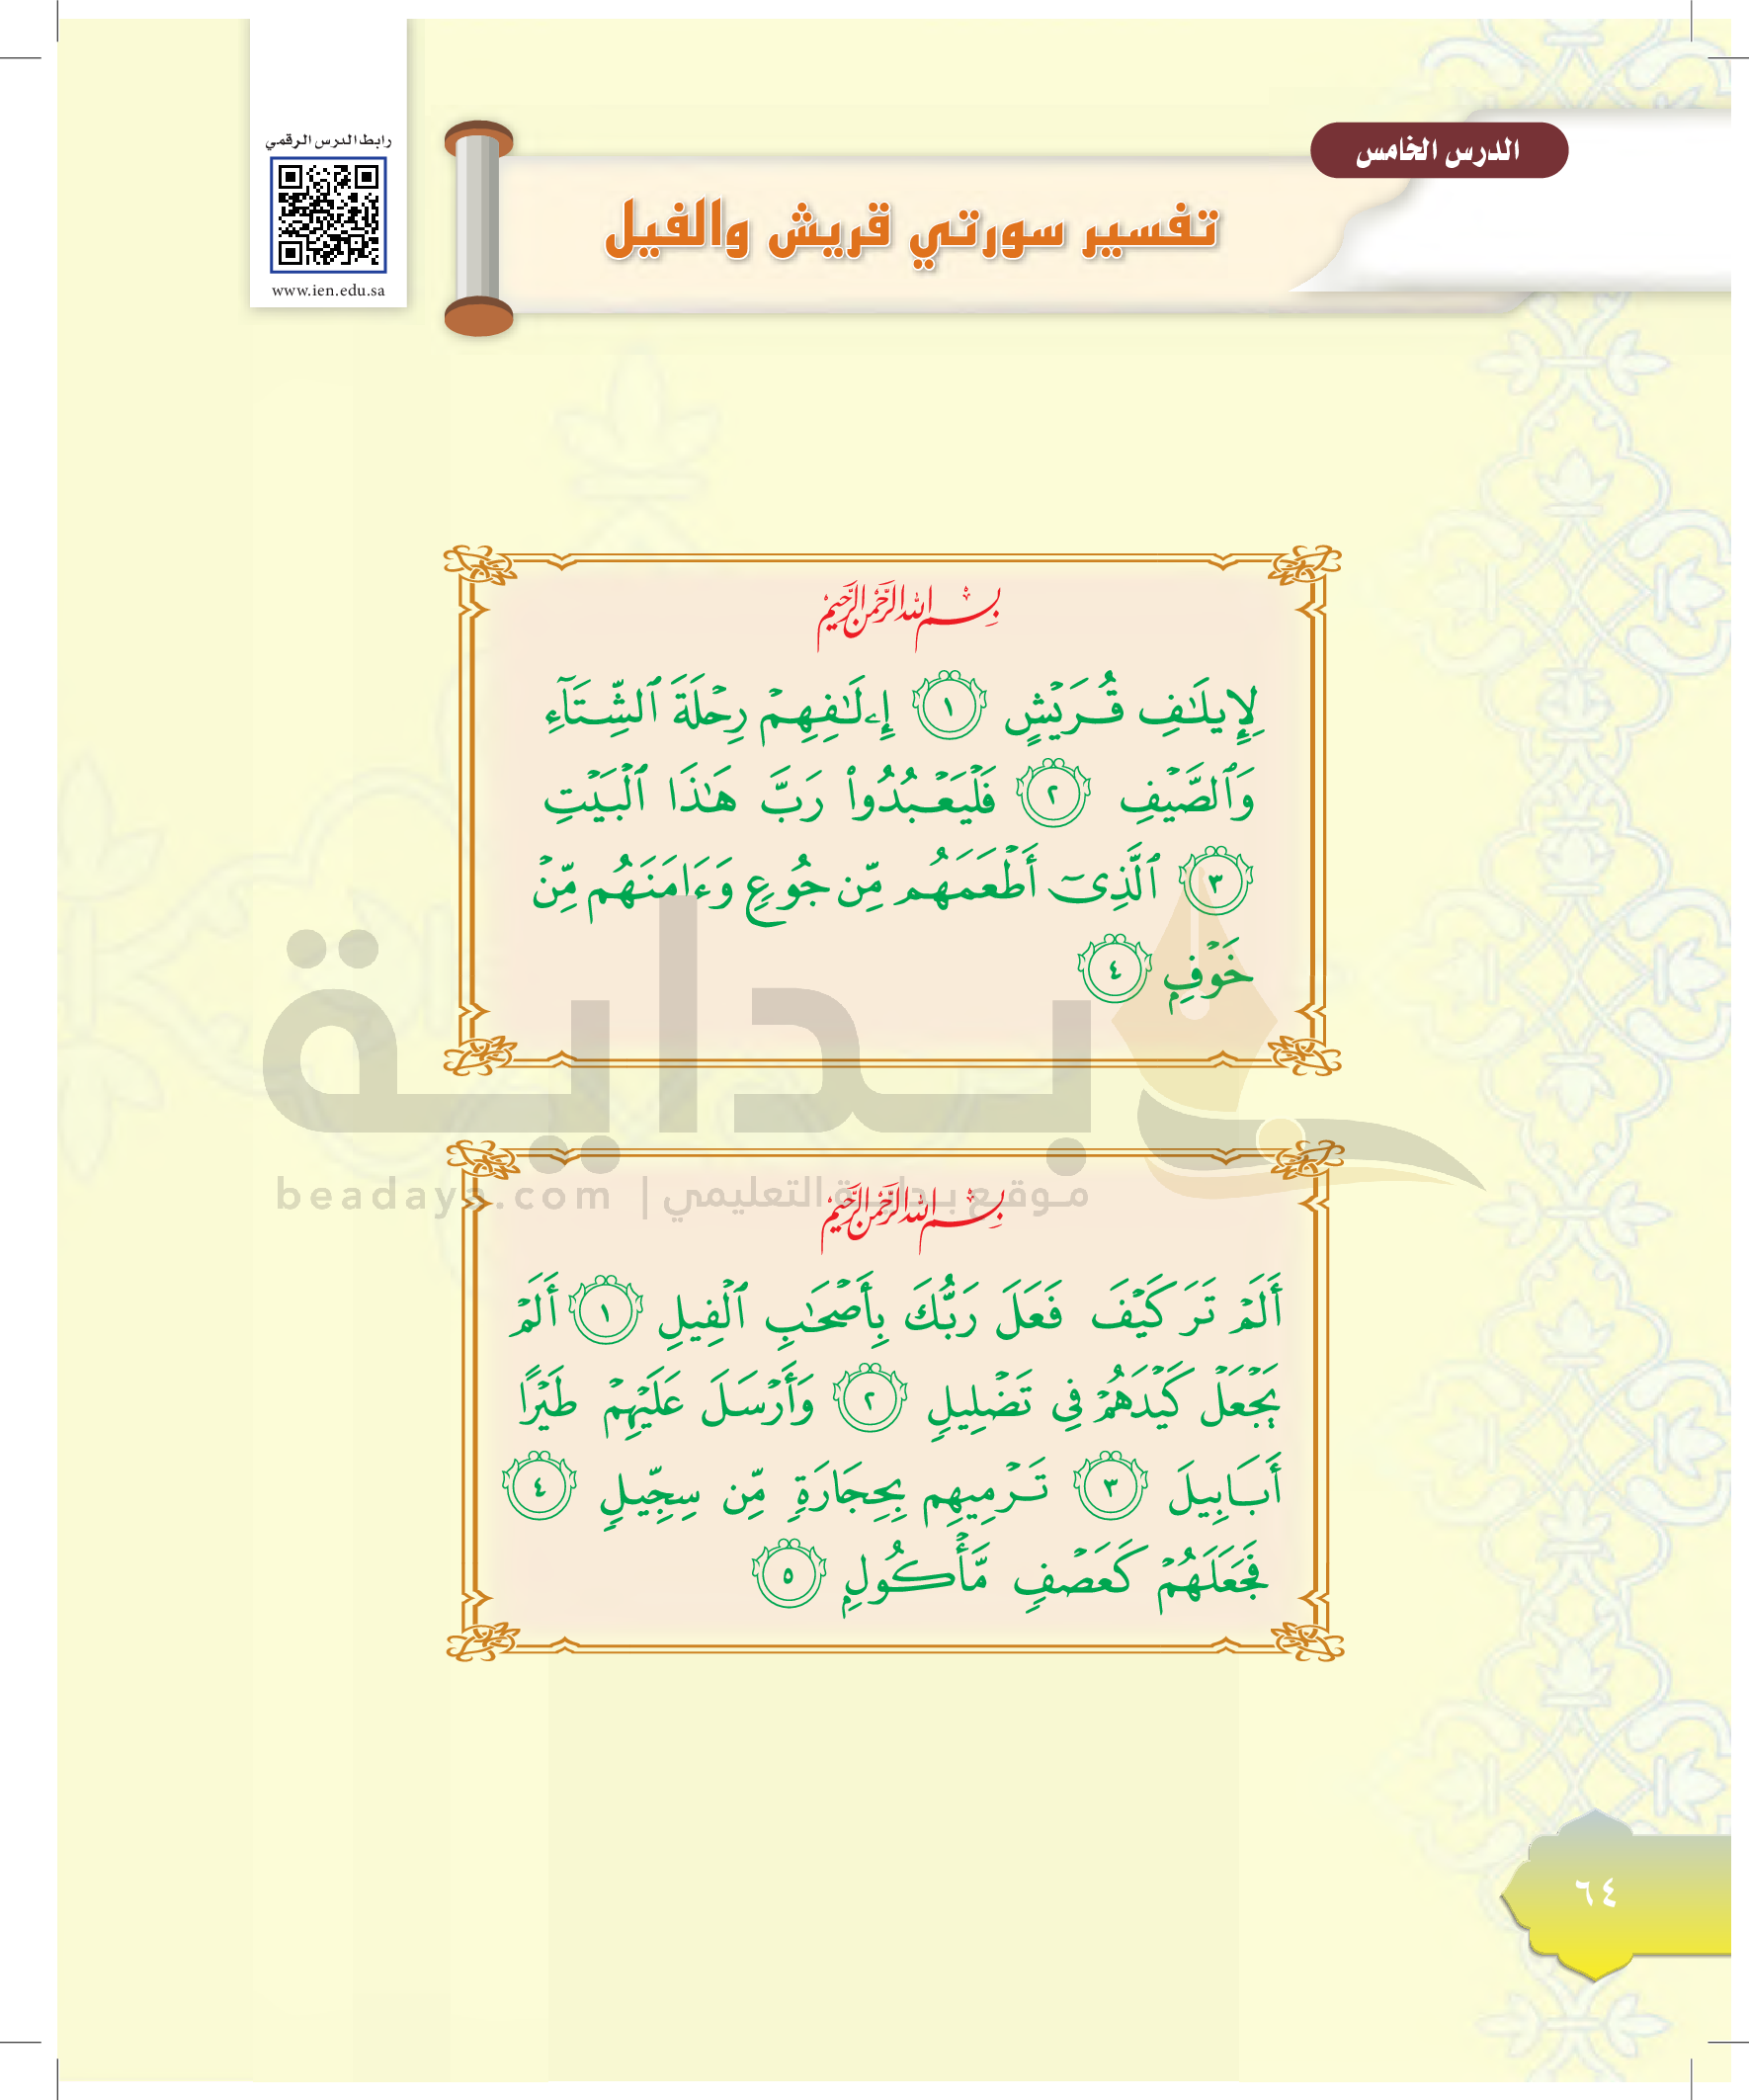 رابط الدرس الرقمي
www.ien.edu.sa
الدرس الخامس
تفسير سورتي قريش والفيل
بِسْمِ اللَّهِ الرَّحْمَٰنِ الرَّحِيمِ
لِإِيلَٰفِ قُرَيْشٍ ١ إِۦلَٰفِهِمْ رِحْلَةَ ٱلشِّتَآءِ
وَٱلصَّيْفِ ٢ فَلْيَعْبُدُوا۟ رَبَّ هَٰذَا ٱلْبَيْتِ
٣ ٱلَّذِىٓ أَطْعَمَهُم مِّن جُوعٍ وَءَامَنَهُم مِّنْ
خَوْفٍۭ ٤
بداية
beadaya.com | موقع بداية التعليمي
بِسْمِ اللَّهِ الرَّحْمَٰنِ الرَّحِيمِ
أَلَمْ تَرَ كَيْفَ فَعَلَ رَبُّكَ بِأَصْحَٰبِ ٱلْفِيلِ ١ أَلَمْ
يَجْعَلْ كَيْدَهُمْ فِى تَضْلِيلٍ ٢ وَأَرْسَلَ عَلَيْهِمْ طَيْرًا
أَبَابِيلَ ٣ تَرْمِيهِم بِحِجَارَةٍ مِّن سِجِّيلٍ ٤
فَجَعَلَهُمْ كَعَصْفٍ مَّأْكُولٍۭ ٥
٦٤